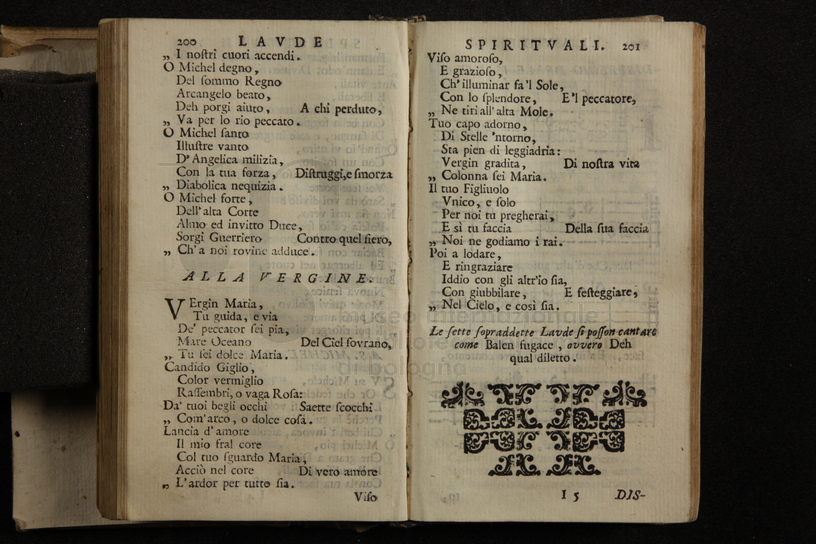 200 LAVDE
„ I noſtri cuori accendi.
O Michel degno,
Del ſommo Regno
Arcangelo beato,
Deh porgi aiuto, A chi perduto,
„ Va per lo rio peccato.
O Michel ſanto
Illuſtre vanto
D'Angelica milizia,
Con la tua forza, Diſtruggi,e ſmorza
„ Diabolica nequizia.
O Michel forte,
Dell'alta Corte
Almo ed invitto Duce,
Sorgi Guerriero Contro quel fiero,
„ Ch'a noi rovine adduce.
ALLA VERGINE.
VErgin Maria,
Tu guida, e via
De' peccator ſei pia,
Mare Oceano Del Ciel ſovrano,
„ Tu ſei dolce Maria.
Candido Giglio,
Color vermiglio
Raſſembri, o vaga Roſa:
Da' tuoi begli occhi Saette ſcocchi
„ Com'arco, o dolce coſa.
Lancia d'amore
Il mio fral core
Col tuo ſguardo Maria,
Acciò nel core Di vero amore
„ L'ardor per tutto ſia.
Viſo
SPIRITVALI. 201
Viſo amoroſo,
E grazioſo,
Ch'illuminar fa'l Sole,
Con lo ſplendore, E'l peccatore,
„ Ne tiri all'alta Mole.
Tuo capo adorno,
Di Stelle 'ntorno,
Sta pien di leggiadria:
Vergin gradita, Di noſtra vita
„ Colonna ſei Maria.
Il tuo Figliuolo
Vnico, e ſolo
Per noi tu pregherai,
E sì tu faccia Della ſua faccia
„ Noi ne godiamo i rai.
Poi a lodare,
E ringraziare
Iddio con gli altr'io ſia,
Con giubbilare, E feſteggiare,
„ Nel Cielo, e così ſia.
Le ſette ſopraddette Lavde ſi poſſon cantare
come Balen fugace, ovvero Deh
qual diletto.
I 5 DIS-